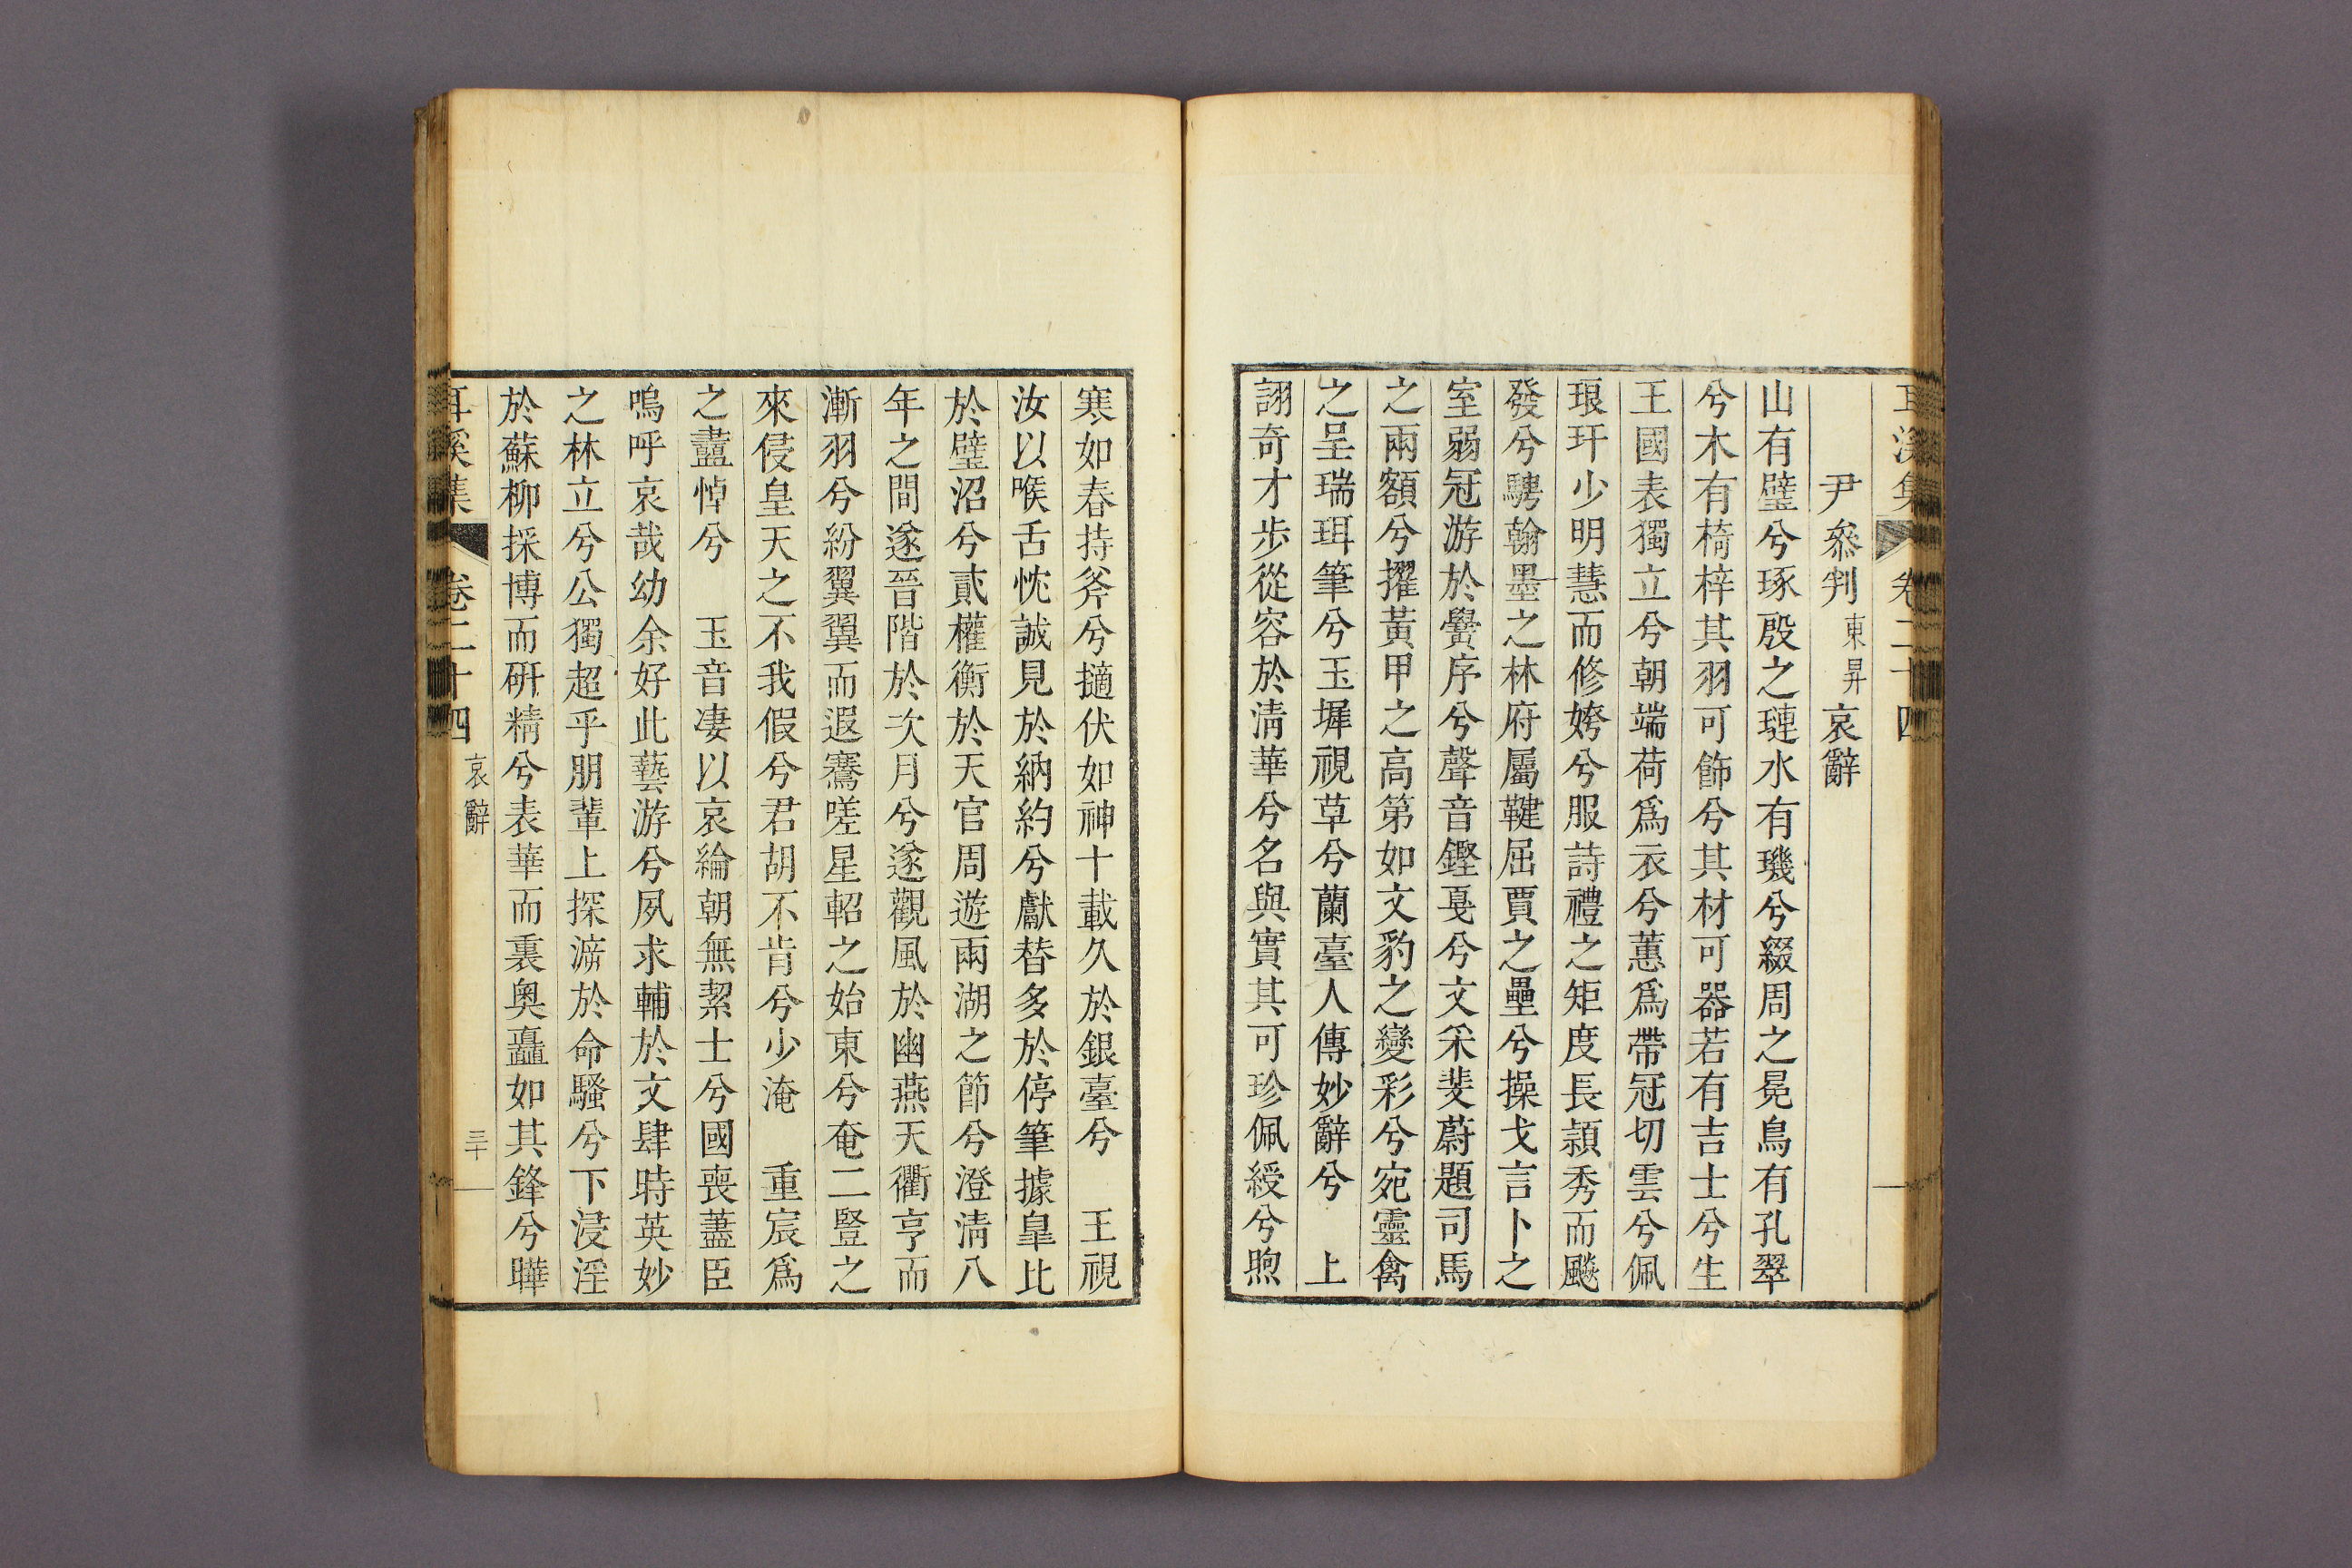 耳溪集 卷二十四
尹叅判東昇哀辭
山有璧兮琢殷之璉水有璣兮綴周之冕鳥有孔翠
兮木有椅梓其羽可飾兮其材可器若有吉士兮生
王國表獨立兮朝端荷爲衣兮蕙爲帶冠切雲兮佩
琅玕少明慧而修姱兮服詩禮之矩度長穎秀而飈
發兮騁翰墨之林府屬鞬屈賈之壘兮操戈言卜之
室弱冠游於黌序兮聲音鏗戛兮文采斐蔚題司馬
之兩額兮擢黃甲之高第如文豹之變彩兮宛靈禽
之呈瑞珥筆兮玉墀視草兮蘭臺人傳妙辭兮 上
詡奇才步從容於淸華兮名與實其可珍佩綬兮煦
寒如春持斧兮擿伏如神十載久於銀臺兮 王視
汝以喉舌忱誠見於納約兮獻替多於停筆據皐比
於璧沼兮貳權衡於天官周遊兩湖之節兮澄淸八
年之間遂晉階於次月兮遂觀風於幽燕天衢亨而
漸羽兮紛翼翼而遐騫嗟星軺之始東兮奄二豎之
來侵皇天之不我假兮君胡不肯兮少淹 重宸爲
之衋悼兮 玉音凄以哀綸朝無絜士兮國喪藎臣
嗚呼哀哉幼余好此藝游兮夙求輔於文肆時英妙
之林立兮公獨超乎朋輩上探源於命騷兮下浸淫
於蘇柳採博而硏精兮表華而裏奧矗如其鋒兮曄
耳溪集 卷二十四 哀辭 三十